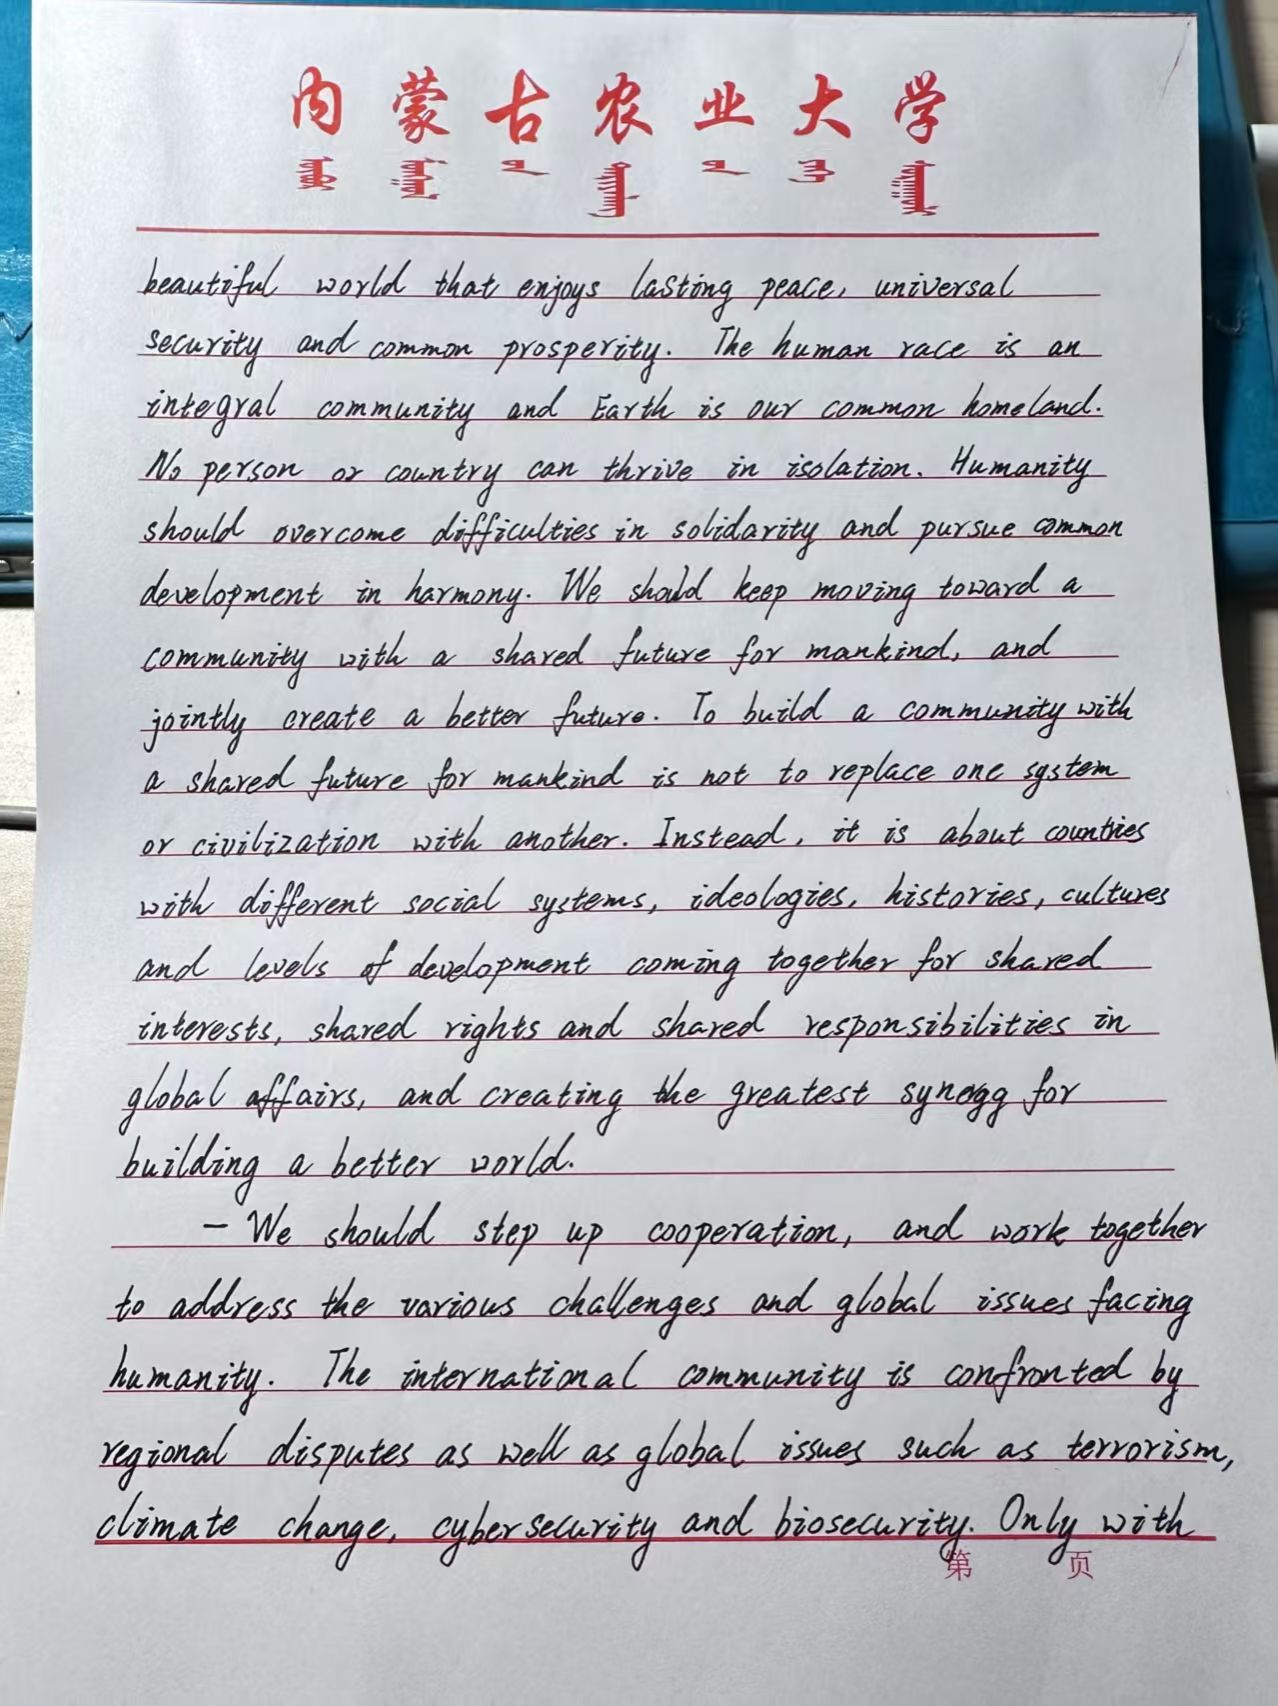 内蒙古农业大学
beautiful world that enjoys lasting peace, universal
security and common prosperity. The human race is an
integral community and Earth is our common homeland.
No person or country can thrive in isolation. Humanity
should overcome difficulties in solidarity and pursue common
development in harmony. We should keep moving toward a
community with a shared future for mankind, and
jointly create a better future. To build a community with
a shared future for mankind is not to replace one system
or civilization with another. Instead, it is about countries
with different social systems, ideologies, histories, cultures
and levels of development coming together for shared
interests, shared rights and shared responsibilities in
global affairs, and creating the greatest synergy for
building a better world.
– We should step up cooperation, and work together
to address the various challenges and global issues facing
humanity. The international community is confronted by
regional disputes as well as global issues such as terrorism,
climate change, cybersecurity and biosecurity. Only with
第 页